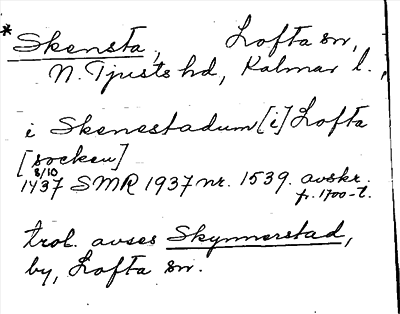 * Skensta, Lofta sn,
N. Tjusts hd, Kalmar l.,
i Skenestadum [i] Lofta
[socken]
8/10
1437 SMR 1937 nr. 1539. avskr.
fr. 1700-t.
trol. avses Skynnerstad,
by, Lofta sn.